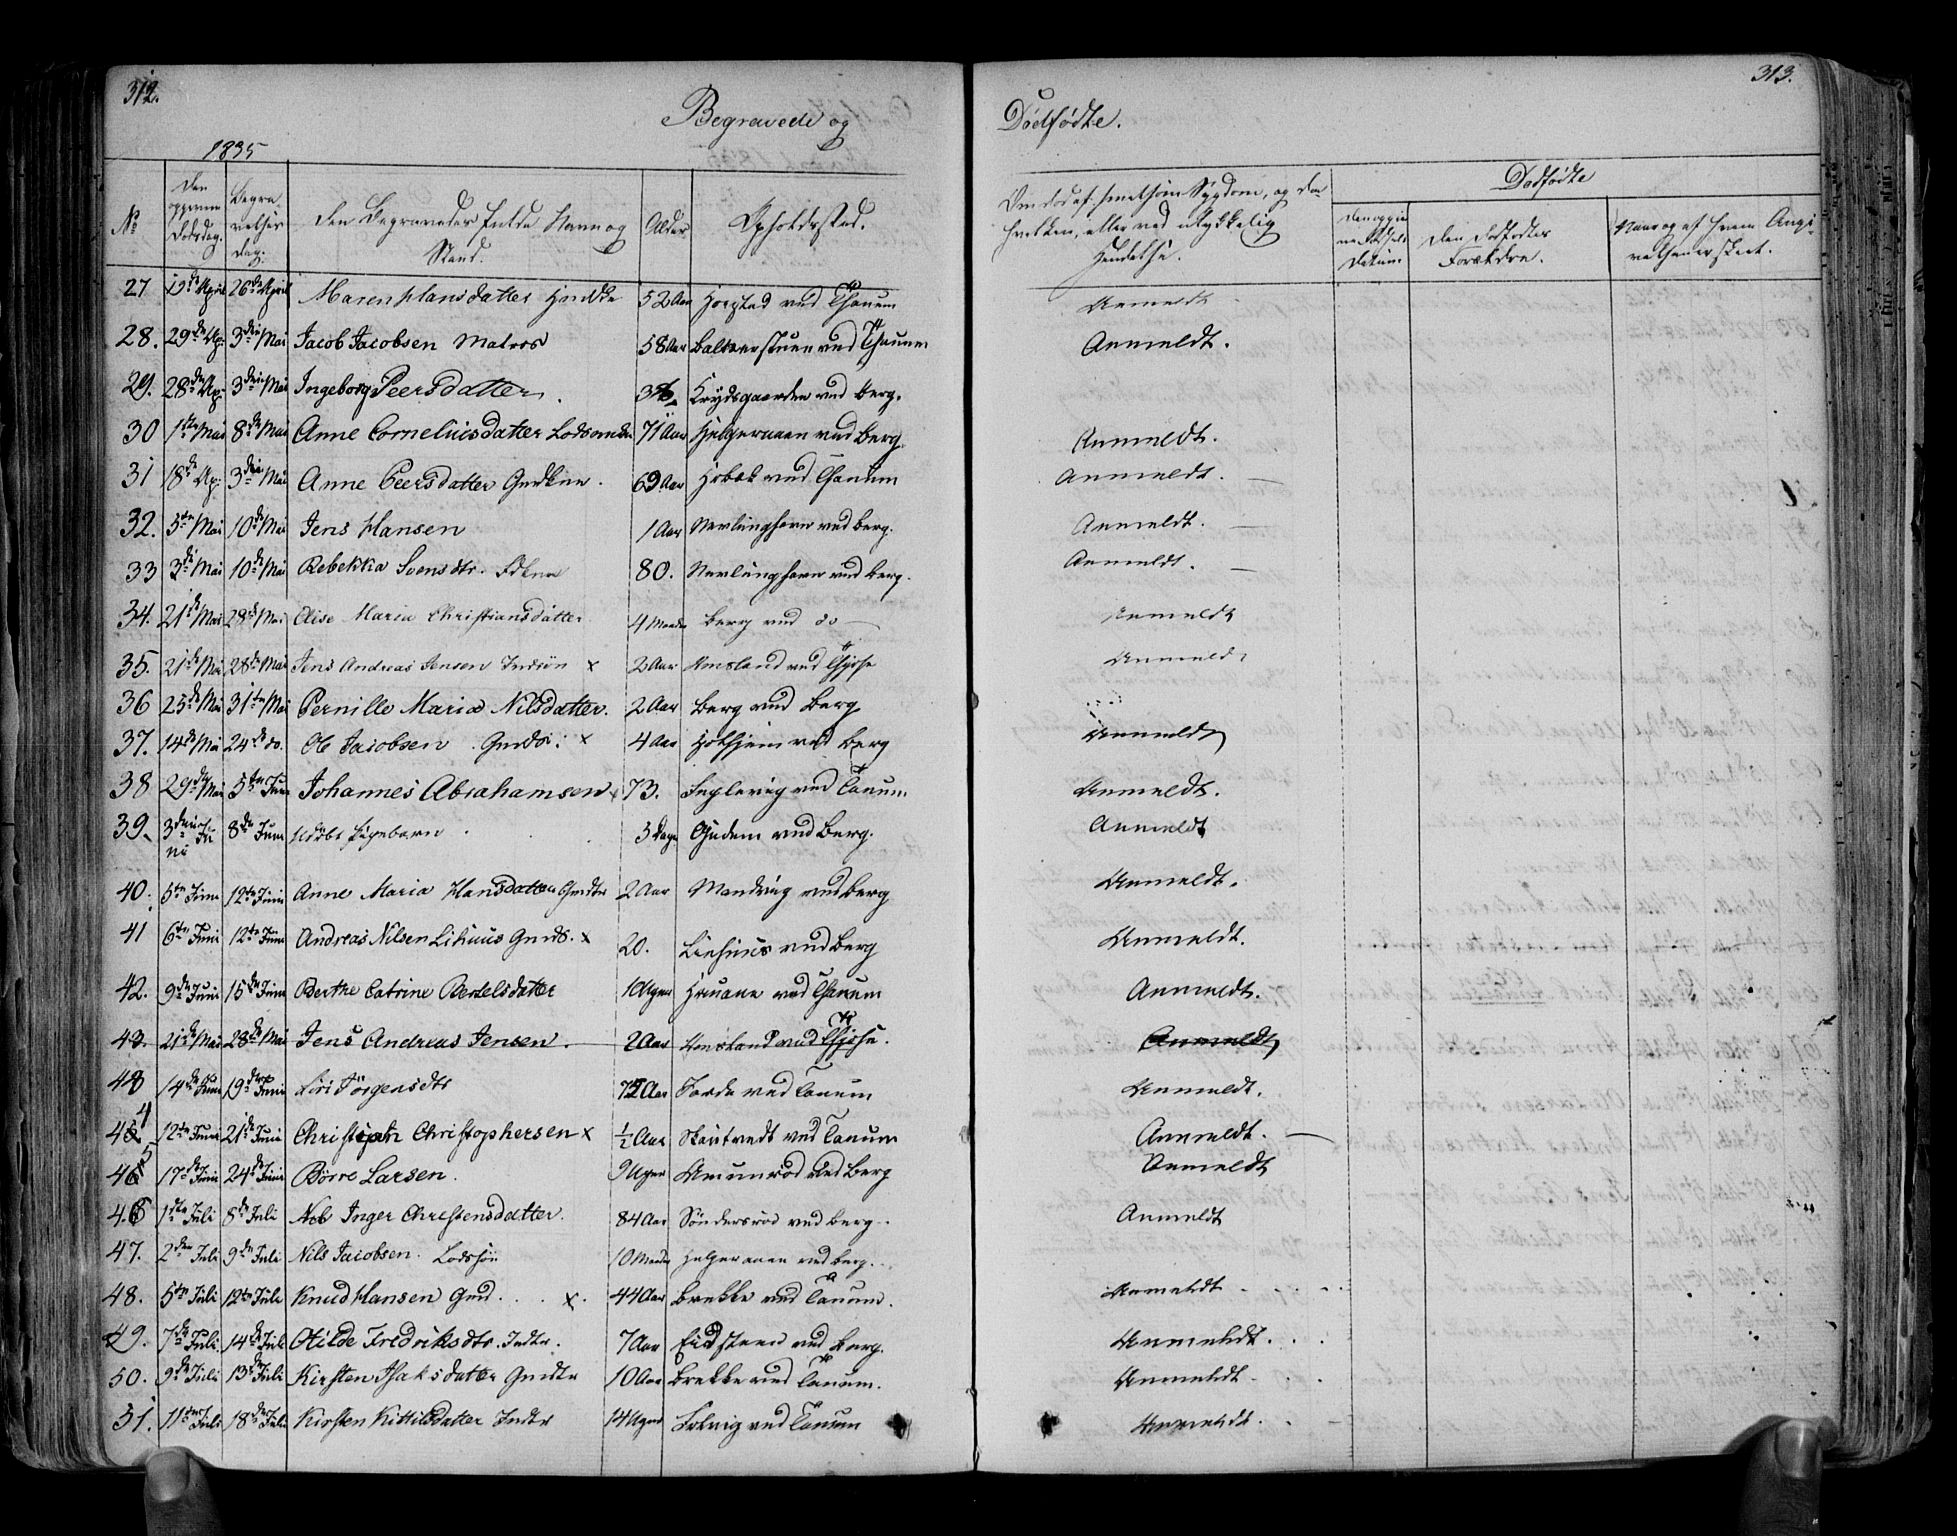 312.
313.
Begravede og
Dödfödte.
1835
Dødfødte
No
Den opgivne Dødsdag.
Begravelses dag.
Den Begravedes fulde Navn og Stand.
Alder
Opholdssted.
Om død af smitsom Sygdom, og da hvilken, eller ved ulykkelig Hendelse.
Den opgivne Fødsels Datum
Den Dødfødtes Forældre.
Naar og af hvem Angivelsen er skeet.
27 19de April 26de April Maren Hansdatter 52 Aar ved Thanum Anmeldt
28. 29de Ap: 3die Mai Jacob Jacobsen Matros 58 Aar ved Thanum Anmeldt.
29. 28de Ap: 3die Mai Ingeborg Peersdatter. Krydsgaarden ved Berg.
30 1ste Mai 8de Mai Anne Corneliusdatter 71 Aar Helgeroaen ved Berg. Anmeldt.
31 18de Ap: 3die Mai Anne Peersdatter 69 Aar ved Thanum Anmeldt.
32. 5te Mai 10de Mai Jens Hansen 1 Aar Nevlunghavn ved Berg. Anmeldt.
33 3die Mai 10de Mai Rebekka Svensdtr. 80. Nevlunghavn ved Berg. Anmeldt.
34. 21de Mai 28de Mai Elise Maria Christiansdatter 4 Maaneder Berg ved do Anmeldt
35. 21de Mai 28de Mai Jens Andreas Jensen Indsön x 2 Aar Omsland ved Thjose Anmeldt
36 25de Mai 31te Mai Pernille Maria Nilsdatter. 2 Aar Berg ved Berg
37. 14de Mai 24de do. Ole Jacobsen Gmds: x 4 Aar ved Berg Anmeldt
38 29de Mai 5te Juni Johannes Abrahamsen x 73. ved Tanum Anmeldt.
39. 3die Juni 8de Juni Udöbt Pigebarn 3 Dage ved Berg. Anmeldt
40. 5te Juni 12te Juni Anne Maria Hansdatter Gmdtr 2 Aar Manvig ved Berg Anmeldt.
41 6te Juni 12te Juni Andreas Nilsen Lihuus Gmds. x 20. Liehuus ved Berg Anmeldt.
42. 9de Juni 15de Juni Berthe Catrine Bertelsdatter 10 Uger ved Thanum Anmeldt.
43. 21de Mai 28de Mai Jens Andreas Jensen. 2 Aar Omsland ved Thjose. Anmeldt
43 14de Juni 19de Juni Siri Jörgensdtr 72 Aar ved Tanum Anmeldt.
44 12te Juni 21de Juni Christoph Christophersen x ½ Aar ved Tanum Anmeldt.
45 17de Juni 24de Juni Börre Larsen. 9 Uger Amunröd ved Berg Anmeldt
46 1ste Juli 8de Juli Inger Christensdatter. 84 Aar Söndersröd ved Berg. Anmeldt
47. 2den Juli 9de Juli Nils Jacobsen. Lodssön 10 Maaneder Helgeroaen ved Berg.
48. 5te Juli 12te Juli Knud Hansen Gmd. x. 44 Aar Brekke ved Tanum. Anmeldt
49. 7de Juli 14de Juli Otilde Fredriksdtr. Indtr. 7 Aar Eidsteen ved Berg. Anmeldt.
50. 9de Juli 13de Juli Kirsten Isaksdatter Gmdtr 10 Aar Brekke ved Tanum. Anmeldt
51. 11te Juli 18de Juli Kirsten Kittilsdatter Indtr 14 Uger ved Tanum Anmeldt.